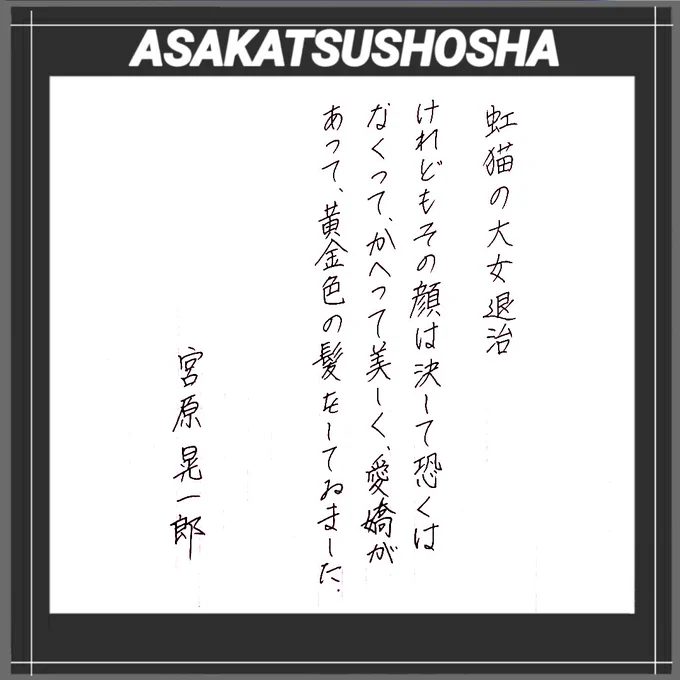 ASAKATSUSHOSHA
虹猫の大女退治
けれどもその顔は決して恐くは
なくって、かへって美しく、愛嬌が
あって、黄金色の髪をしてゐました.
宮原晃一郎